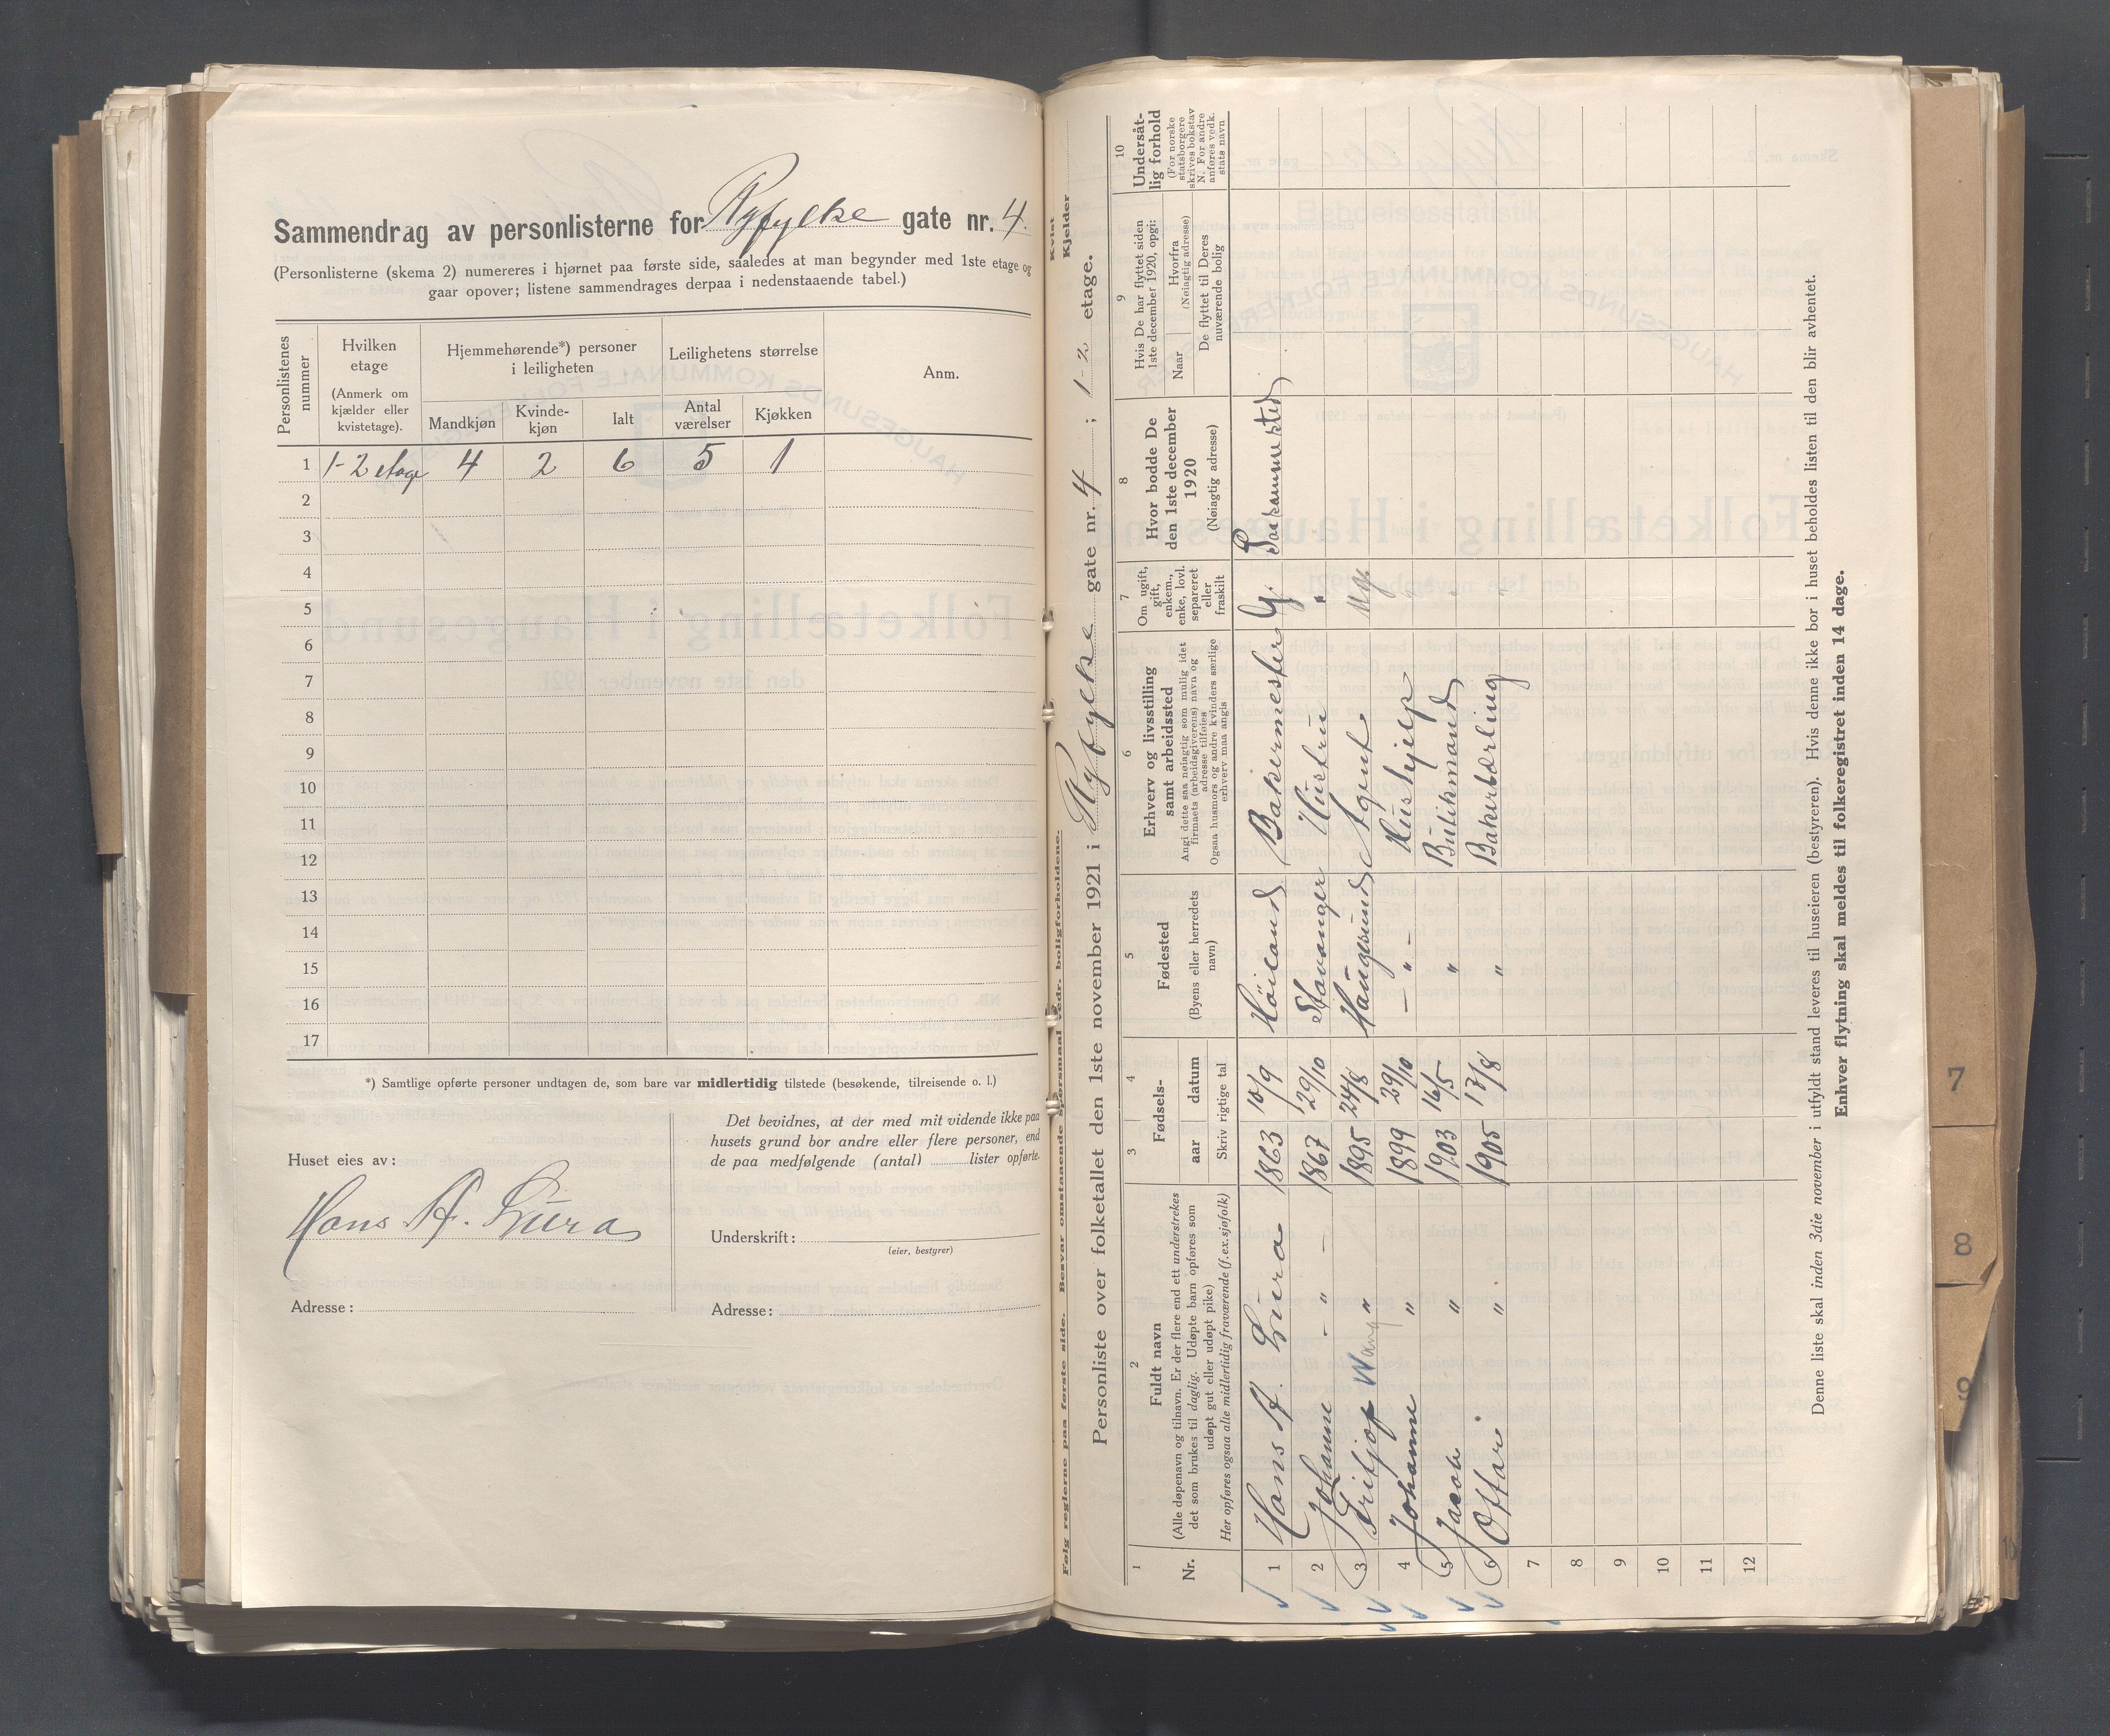 Sammendrag av personlisterne for Ryfylke gate nr. 4.
(Personlisterne (skema 2) numereres i hjørnet paa første side, saaledes at man begynder med 1ste etage og
gaar opover; listene sammendrages derpaa i nedenstaaende tabel.)
Personlistenes nummer
Hvilken etage (Anmerk om kjælder eller kvistetage).
Hjemmehørende*) personer i leiligheten
Mandkjøn
Kvinde-kjøn
Ialt
Leilighetens størrelse
Antal værelser
Kjøkken
Anm.
1 1-2 etage 4 2 6 5 1
2
3
4
5
6
7
8
9
10
11
12
13
14
15
16
17
*) Samtlige opførte personer undtagen de, som bare var midlertidig tilstede (besøkende, tilreisende o. l.)
Huset eies av:
Hans A. Lura
Adresse:
Det bevidnes, at der med mit vidende ikke paa
husets grund bor andre eller flere personer, end
de paa medfølgende (antal) lister opførte.
Underskrift:
(eier, bestyrer)
Adresse:
Følg reglerne paa første side. Besvar omstaaende spørsmaal vedr. boligforholdene.
Kvist
Kjelder
Personliste over folketallet den 1ste november 1921 i Ryfylke gate nr. 4 ; 1-2 etage.
1
Nr.
2
Fuldt navn
(Alle døpenavn og tilnavn. Er der flere end ett understrekes
det som brukes til daglig. Udøpte barn opføres som
udøpt gut eller udøpt pike)
Her opføres ogsaa alle midlertidig fraværende (f.ex. sjøfolk)
3 4
Fødsels-
aar datum
Skriv rigtige tal
5
Fødested
(Byens eller herredets
navn)
6
Erhverv og livsstilling
samt arbeidssted
Angi dette saa nøiagtig som mulig idet
firmaets (arbeidsgiverens) navn og
adresse tilføies
Ogsaa husmors og andre kvinders særlige
erhverv maa angis
7
Om ugift,
gift,
enkem.,
enke, lovl.
separeret
eller
fraskilt
8
Hvor bodde De
den 1ste december
1920
(Nøiagtig adresse)
9
Hvis De har flyttet siden
1ste december 1920, opgi:
Naar
Hvorfra
(Nøiagtig adresse)
De flyttet til Deres
nuværende bolig
10
Undersåt-
lig forhold
(For norske
statsborgere
skrives bokstav
N. For andre
anføres vedk.
stats navn
1 Hans A. Lura 1863 10/9 Höiland Bakermester G. Paa samme sted
2 Johanne - " - 1867 29/10 Stavanger Hustru "
3 Fritjof Wang " 1895 24/8 Haugesund Agent Ug.
4 Johanne " 1899 29/10 - " - Hushjelp "
5 Jacob " 1903 16/5 " Butikmand "
6 Ottar " 1905 13/8 " Bakerlærling "
7
8
9
10
11
12
Denne liste skal inden 3die november i utfyldt stand leveres til huseieren (bestyreren). Hvis denne ikke bor i huset beholdes listen til den blir avhentet.
Enhver flytning skal meldes til folkeregistret inden 14 dage.
7
8
9
10